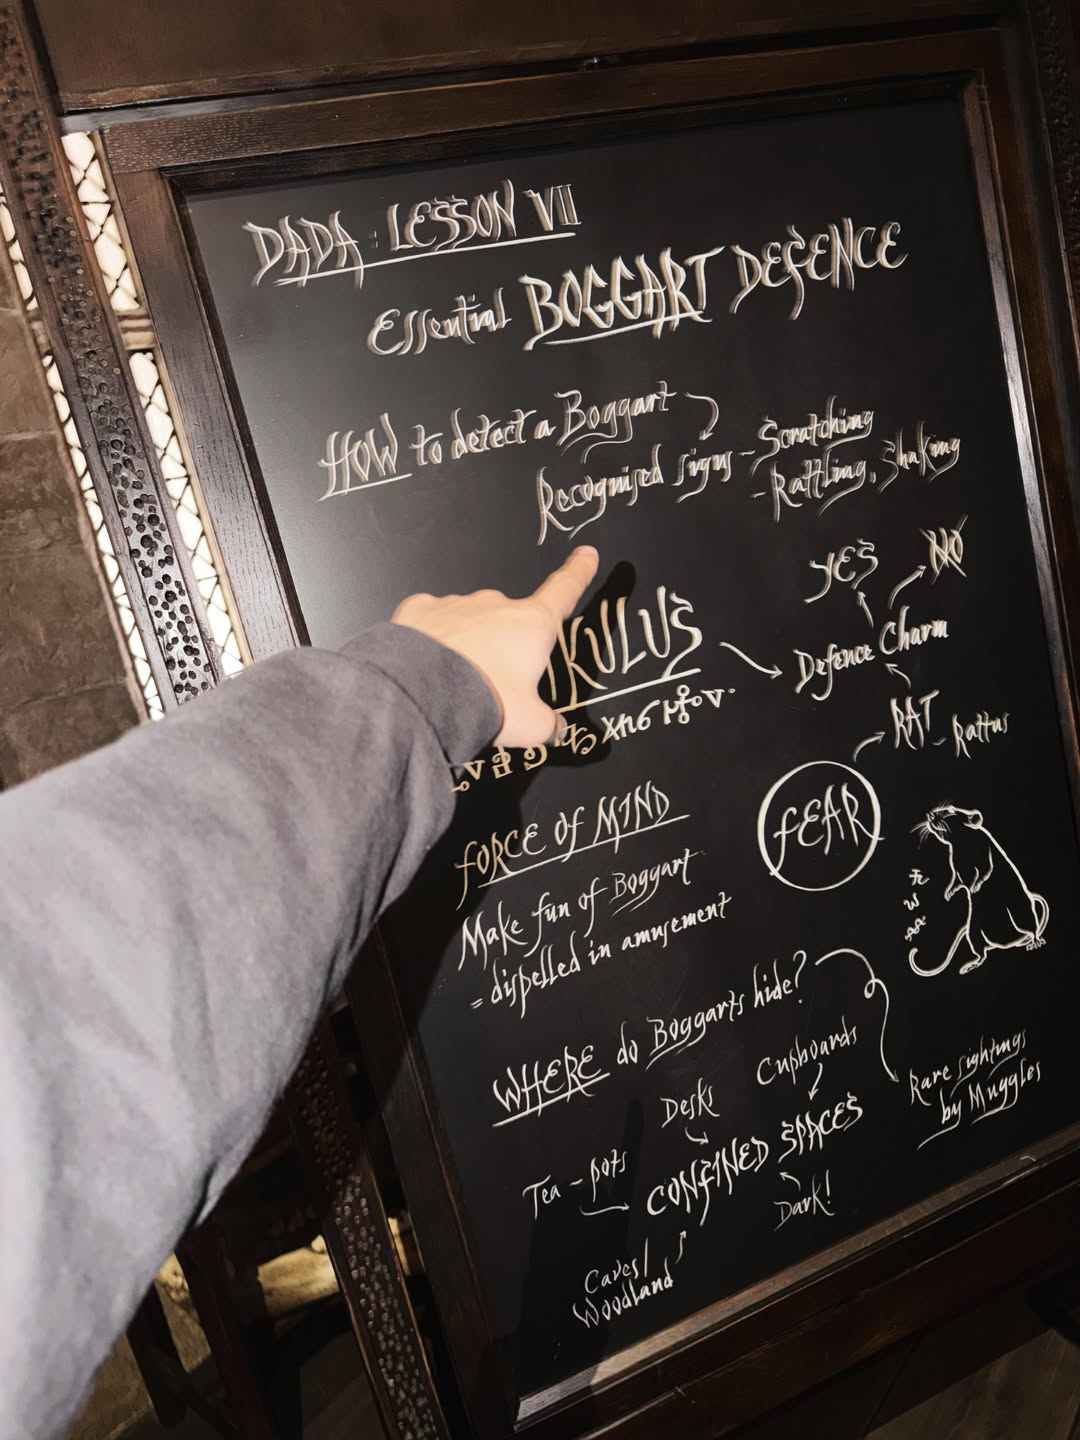 DADA: LESSON VII
Essential BOGGART DEFENCE
HOW to detect a Boggart
Recognised signs - Scratching
- Rattling, Shaking
YES
NO
IKULUS
Defence Charm
RAT - Rattus
FORCE OF MIND
FEAR
Make fun of Boggart
= dispelled in amusement
WHERE do Boggarts hide?
Cupboards
Desks
Rare sightings
by Muggles
Tea-pots
CONFINED SPACES
Dark!
Caves/
Woodland